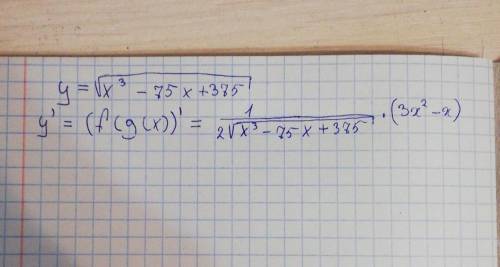 y = √(x³ - 75x + 375)
y' = (f(g(x))' = 1/(2√(x³ - 75x + 375)) · (3x² - x)